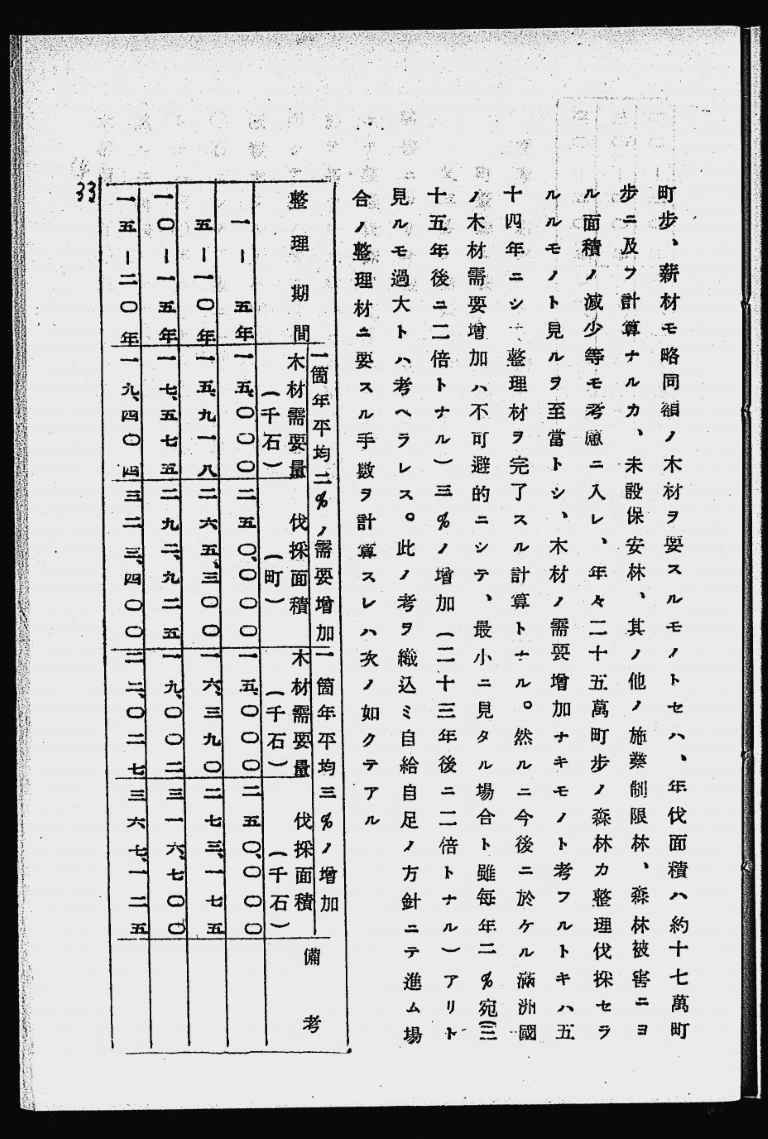 町步、薪材モ略同額ノ木材ヲ要スルモノトセハ、年伐面積ハ約十七萬町
步ニ及フ計算ナルカ、未設保安林、其ノ他ノ施業制限林、森林被害ニヨ
ル面積ノ減少等モ考慮ニ入レ、年々二十五萬町步ノ森林カ整理伐採セラ
ルルモノト見ルヲ至當トシ、木材ノ需要增加ナキモノト考フルトキハ五
十四年ニシ、整理材ヲ完了スル計算トナル。然ルニ今後ニ於ケル滿洲國
ノ木材需要增加ハ不可避的ニシテ、最小ニ見タル場合ト雖每年二%宛(三
十五年後ニ二倍トナル)三%ノ增加(二十三年後ニ二倍トナル)アリト
見ルモ過大トハ考ヘラレス。此ノ考ヲ織込ミ自給自足ノ方針ニテ進ム場
合ノ整理材ニ要スル手數ヲ計算スレハ次ノ如クテアル
一箇年平均二%ノ需要增加
一箇年平均三%ノ增加
整理期間
木材需要量(千石)
伐採面積(町)
木材需要量(千石)
伐採面積(千石)
備考
一—五年 一五、〇〇〇 二五〇、〇〇〇 一五、〇〇〇 二五〇、〇〇〇
五—一〇年 一五、九一八 二六五、三〇〇 一六、三九〇 二七三、一七五
一〇—一五年 一七、五七五 二九二、九二五 一九、〇〇二 三一六、七〇〇
一五—二〇年 一九、四〇四 三二三、四〇〇 二二、〇二七 三六七、一二五
33